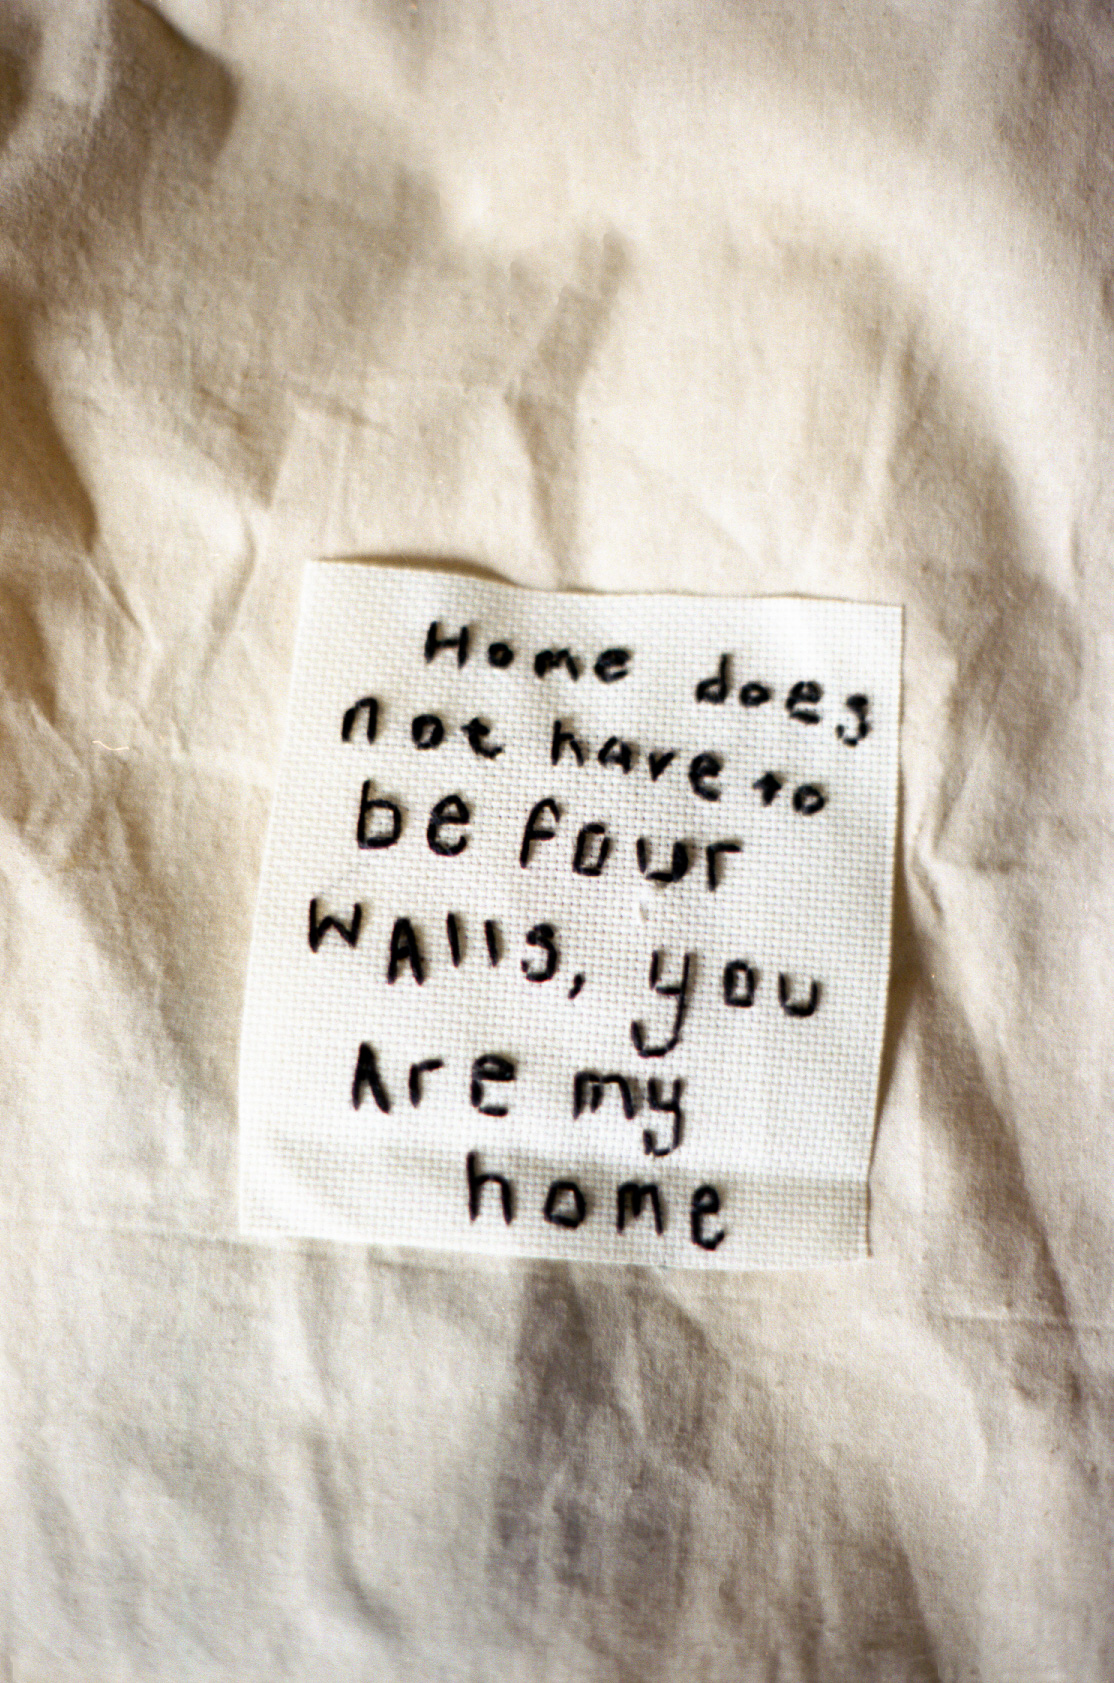 Home does
not have to
be four
wAlls, you
Are my
home